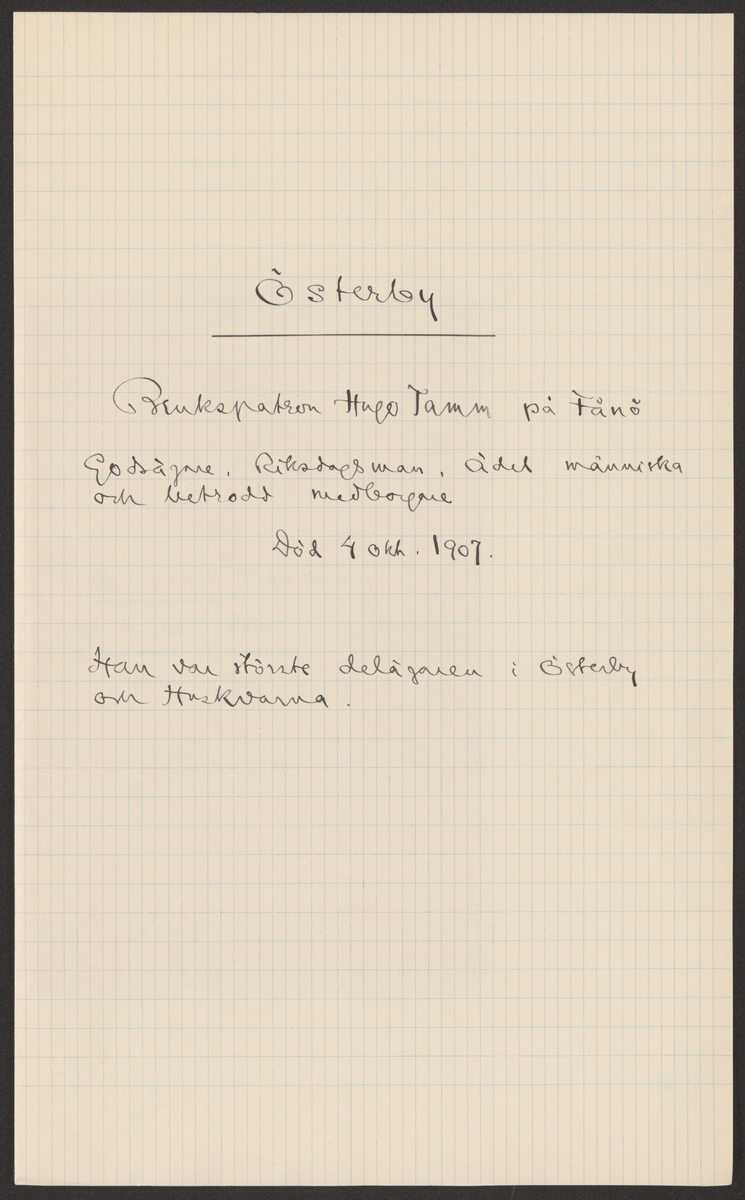 Österby
Brukspatron Hugo Tamm på Fånö
Godsägare, Riksdagsman, ädel människa
och betrodd medborgare
Död 4 okt. 1907.
Han var störste delägaren i Österby
och Huskvarna.